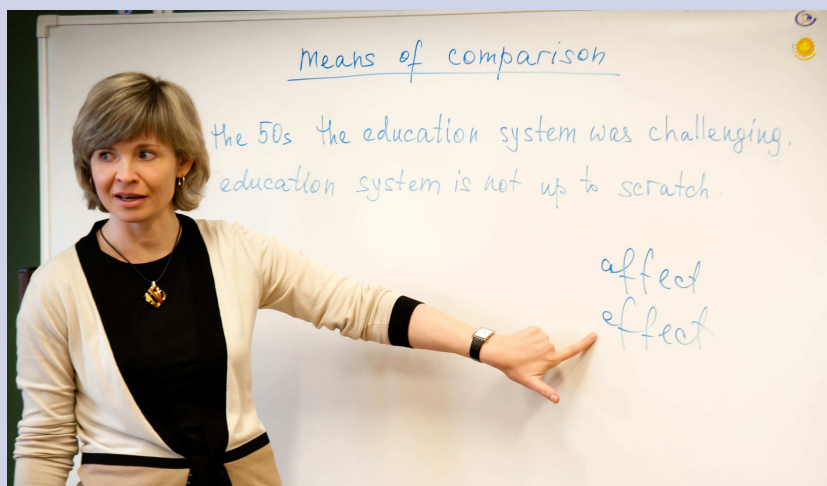 Means of comparison
the 50s the education system was challenging.
education system is not up to scratch.
affect
effect